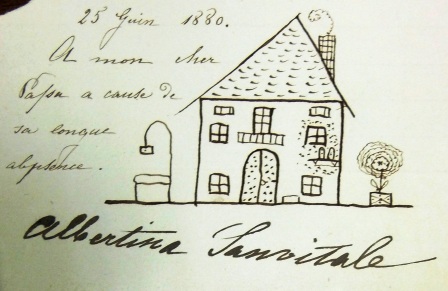 25 Giuin 1880.
A mon cher
Papa a cause de
sa longue
absence.
Albertina Sanvitale